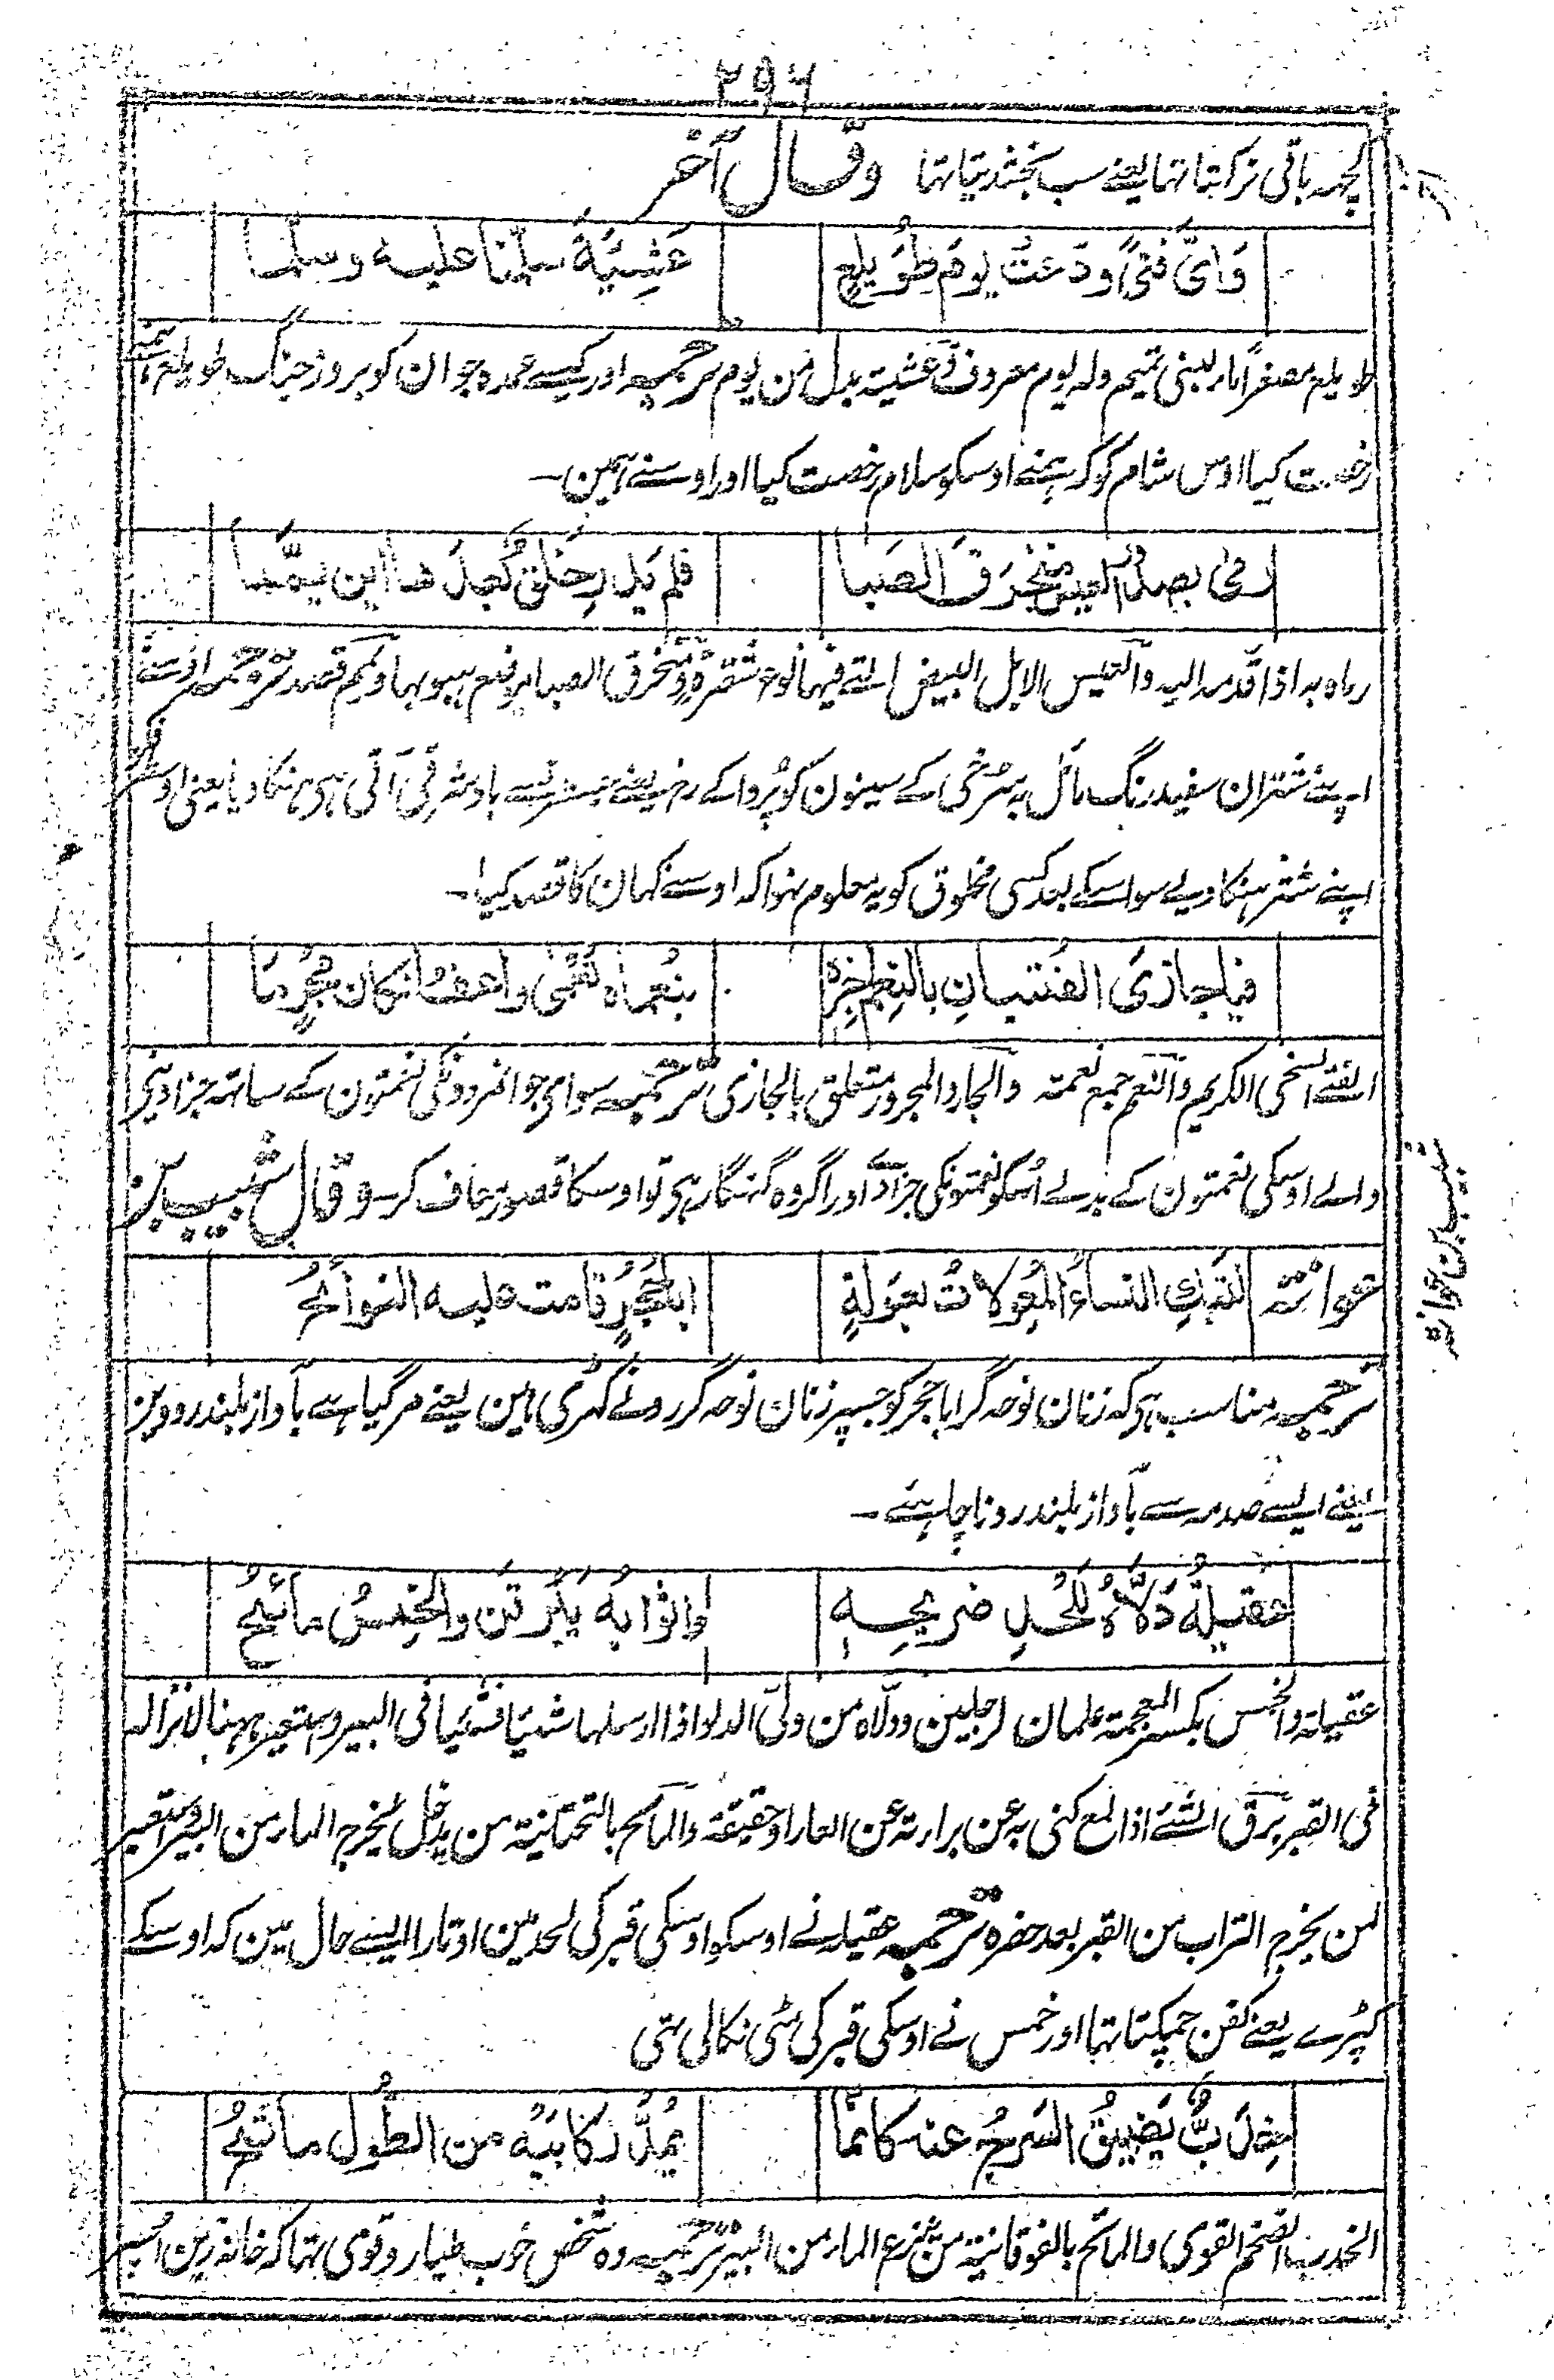 ۲۹۶
کچہہ باقی نرکہتا تہا یعنے سب بخشدیتا تہا وقال آخر
وَاَيُّ فَتًى وَدَّعْتُ يومَ طُوَيلِعٍ عَشِيَّةَ سلّمنا عليه وسلّما
طویلع مصغراً ماء لبنی تمیم ولہ یوم معروف وعشیۃ بدل من یوم ترجمہ اور کیسے عمدہ جوان کو بروز جنگ طویلع ہمنے
رخصت کیا اوس شام کو کہ ہمنے اوسکو سلام رخصت کیا اور اوسنے ہمین۔
رمى بصدور العيس منخرَقَ الصَبا فلم يدرِ خلقٌ بعدَها اين يمّما
رماہ بہ اذا قدمہ الیہ والعیس الابل البیض التے فیہا نوع شقرۃ ومنخرق الصبا موضع ہبوبہا ویمم قصد ترجمہ اوسنے
اپنے شتران سفید رنگ مائل بہ سرخی کے سینون کو پُروا کے رخ یعنے جدہر سے باد شرقی آتی ہی ہنکا دیا یعنی اودہر
اپنے شتر ہنکا دیے سو اسکے بعد کسی مخلوق کو یہ معلوم نہوا کہ اوسنے کہان کا قصد کیا۔
فيا جازيَ الفتيانِ بالنِعَمِ اجزِهٖ بنُعماه نُعمى واعفُ ان كان مُجرِما
الفتے السخی الکریم والنعم جمع نعمۃ والجار والمجرور متعلق بالجازی ترجمہ سوای جوانمردونکی نعمتون کے ساتہہ جزا دینی
والے اوسکی نعمتون کے بدلے اُسکو نعمتونکی جزا دے اور اگر وہ گنہگار ہی تو اوسکا قصور معاف کر وقال شبیب بن
عوانۃ لتبكِ النساءُ المُعوِلاتُ بعَولةٍ اباحَجَرٍ قامت عليه النوائحُ
شبیب بن عوانۃ
ترجمہ مناسب ہی کہ زنان نوحہ گر اباحجر کو جسپر زنان نوحہ گر رونے کہڑی ہین یعنے مر گیا ہے بآواز بلند روویں
یعنے ایسے صدمہ سے بآواز بلند رونا چاہئے۔
عقيلةُ دَلّاهُ للحدِ ضريحهٖ واثوابه يبرُقنَ والخِمسُ مائحُ
عقیلۃ والخمس بکسر المعجمۃ علمان لرجلین ودلاہ من دلی الدلو اذا ارسلہا شیئا فشیئا فی البیر واستعیر ہہنا لانزالہ
فی القبر برق الشئے اذا لمع کنی بہ عن براءتہ عن العار او حقیقۃ والمائح بالتحتانیۃ من یدخل لیخرج الماء من البیر واستعیر
لمن یخرج التراب من القبر بعد حفرہ ترجمہ عقیلہ نے اوسکو اوسکی قبر کی لحد مین اوتارا ایسے حال مین کہ اوسکے
کپڑے یعنے کفن چمکتا تہا اور خمس نے اوسکی قبر کی مٹی نکالی تہی
خِدَبٌّ يَضيقُ السَرجُ عنه كانّما يَمُدُّ ركابَيه من الطُولِ ماتحُ
الخدب الضخم القوی والماتح بالفوقانیۃ من ینزع الماء من البیر ترجمہ وہ شخص خوب طیار وقوی تہا کہ خانۂ زین اسپ